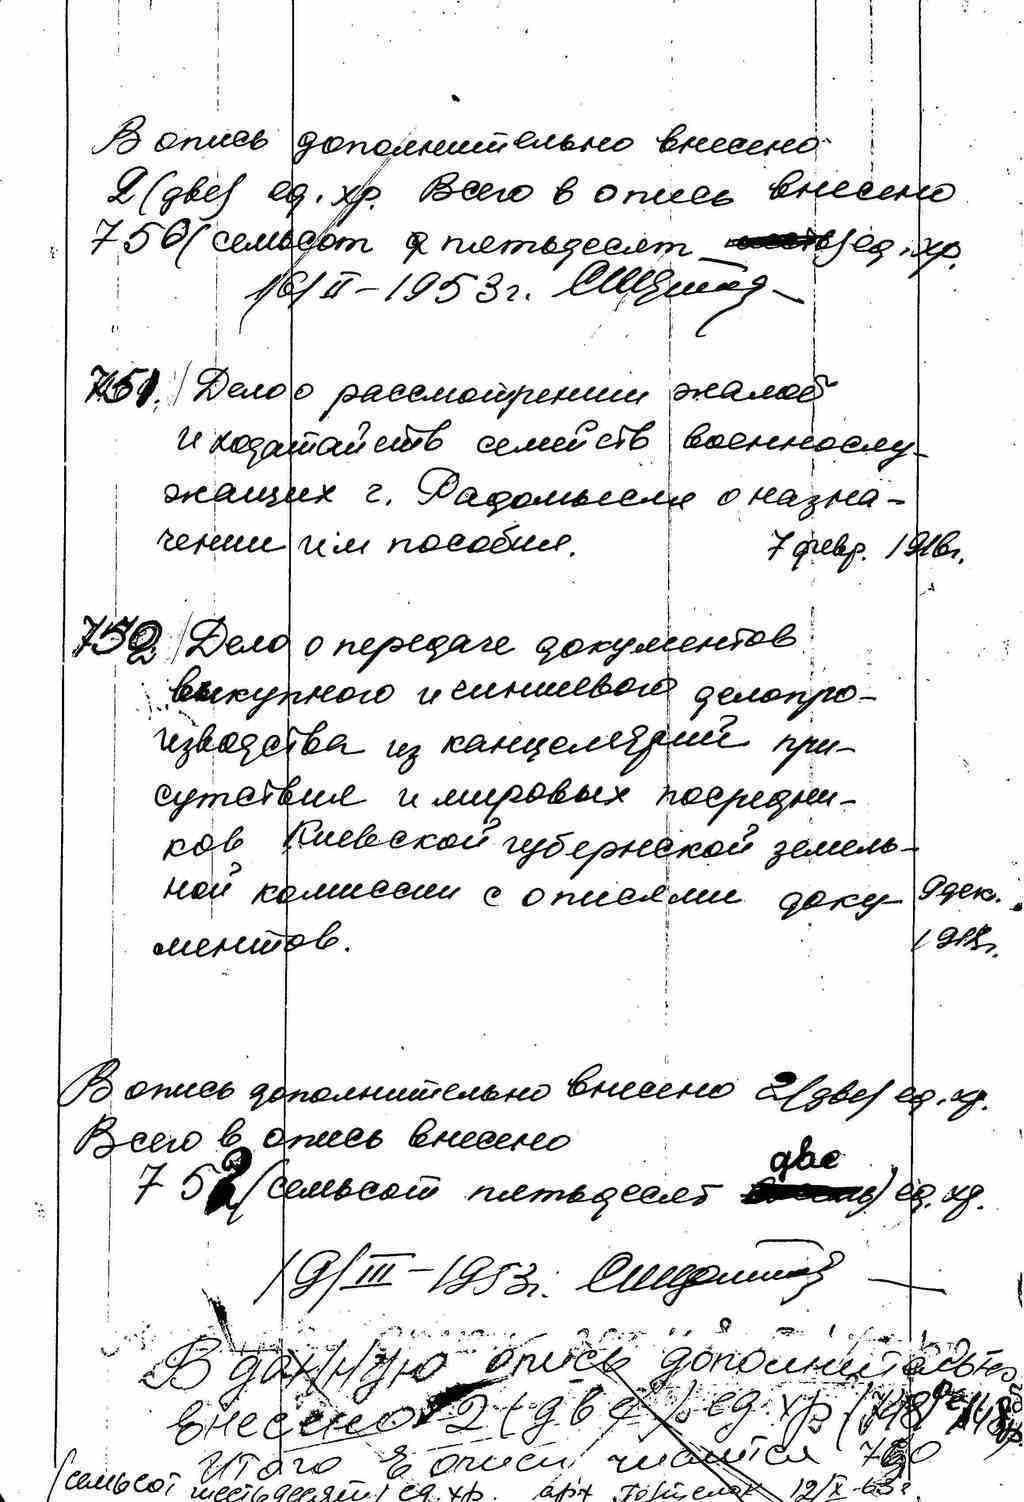 В опись дополнительно внесено
2 (две) ед. хр. Всего в опись внесено
750 (семьсот пятьдесят) ед. хр.
16/II – 1953 г.
751. Дело о рассмотрении жалоб
и ходатайств семейств военнослу-
жащих г. Радомысля о назна-
чении им пособия. 7 февр. 1916 г.
752 Дело о передаче документов
выкупного и чиншевого делопро-
изводства из канцелярий при-
сутствия и мировых посредни-
ков Киевской губернской земель-
ной комиссии с описями доку- 9 дек.
ментов.
В опись дополнительно внесено 2 (две) ед. хр.
Всего в опись внесено
две
752 (семьсот пятьдесят) ед. хр.
19/III – 1953 г.
В данную опись дополнительно
внесено 2 (две) ед. хр.
Итого в описи числится 760
(семьсот шестьдесят) ед. хр. арх 12/X-63 г.